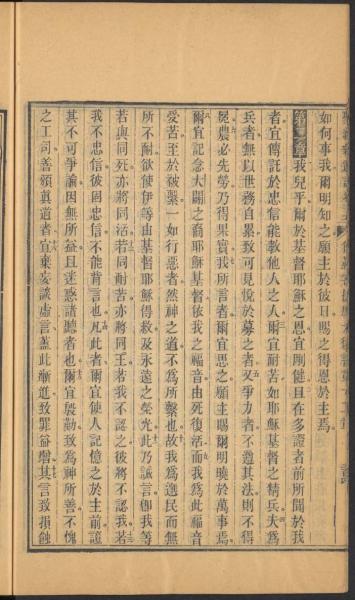 如何事我爾明知之願主於彼日賜之得恩於主焉
第二章我兒乎爾於基督耶穌之恩宜剛健且在多證者前所聞於我
者宜傳託於忠信能教他人之人爾宜耐苦如耶穌基督之精兵夫爲
兵者無以世務自累致可見悅於募之者又爭力者不遵其法則不得
冕農必先勞乃得果實我所言者爾宜思之願主賜爾明曉於萬事焉
爾宜記念大闢之裔耶穌基督依我之福音由死復活而我爲此福音
愛苦至於被繫一如行惡者然神之道不爲所繫也故我爲選民而無
所不耐欲使伊等由基督耶穌得救及永遠之榮光此乃誠言卽我等
若與同死亦將同活若同耐苦亦將同王若我不認之彼將不認我若
我不忠信彼固忠信不能背言也凡此者爾宜使人記憶之於主前證
其不可爭論因無所益且迷惑諸聽者也爾宜殷勤致爲神所善不愧
之工司善頒眞道者宜棄妄談虛言蓋此漸進致罪益增其言致損蝕